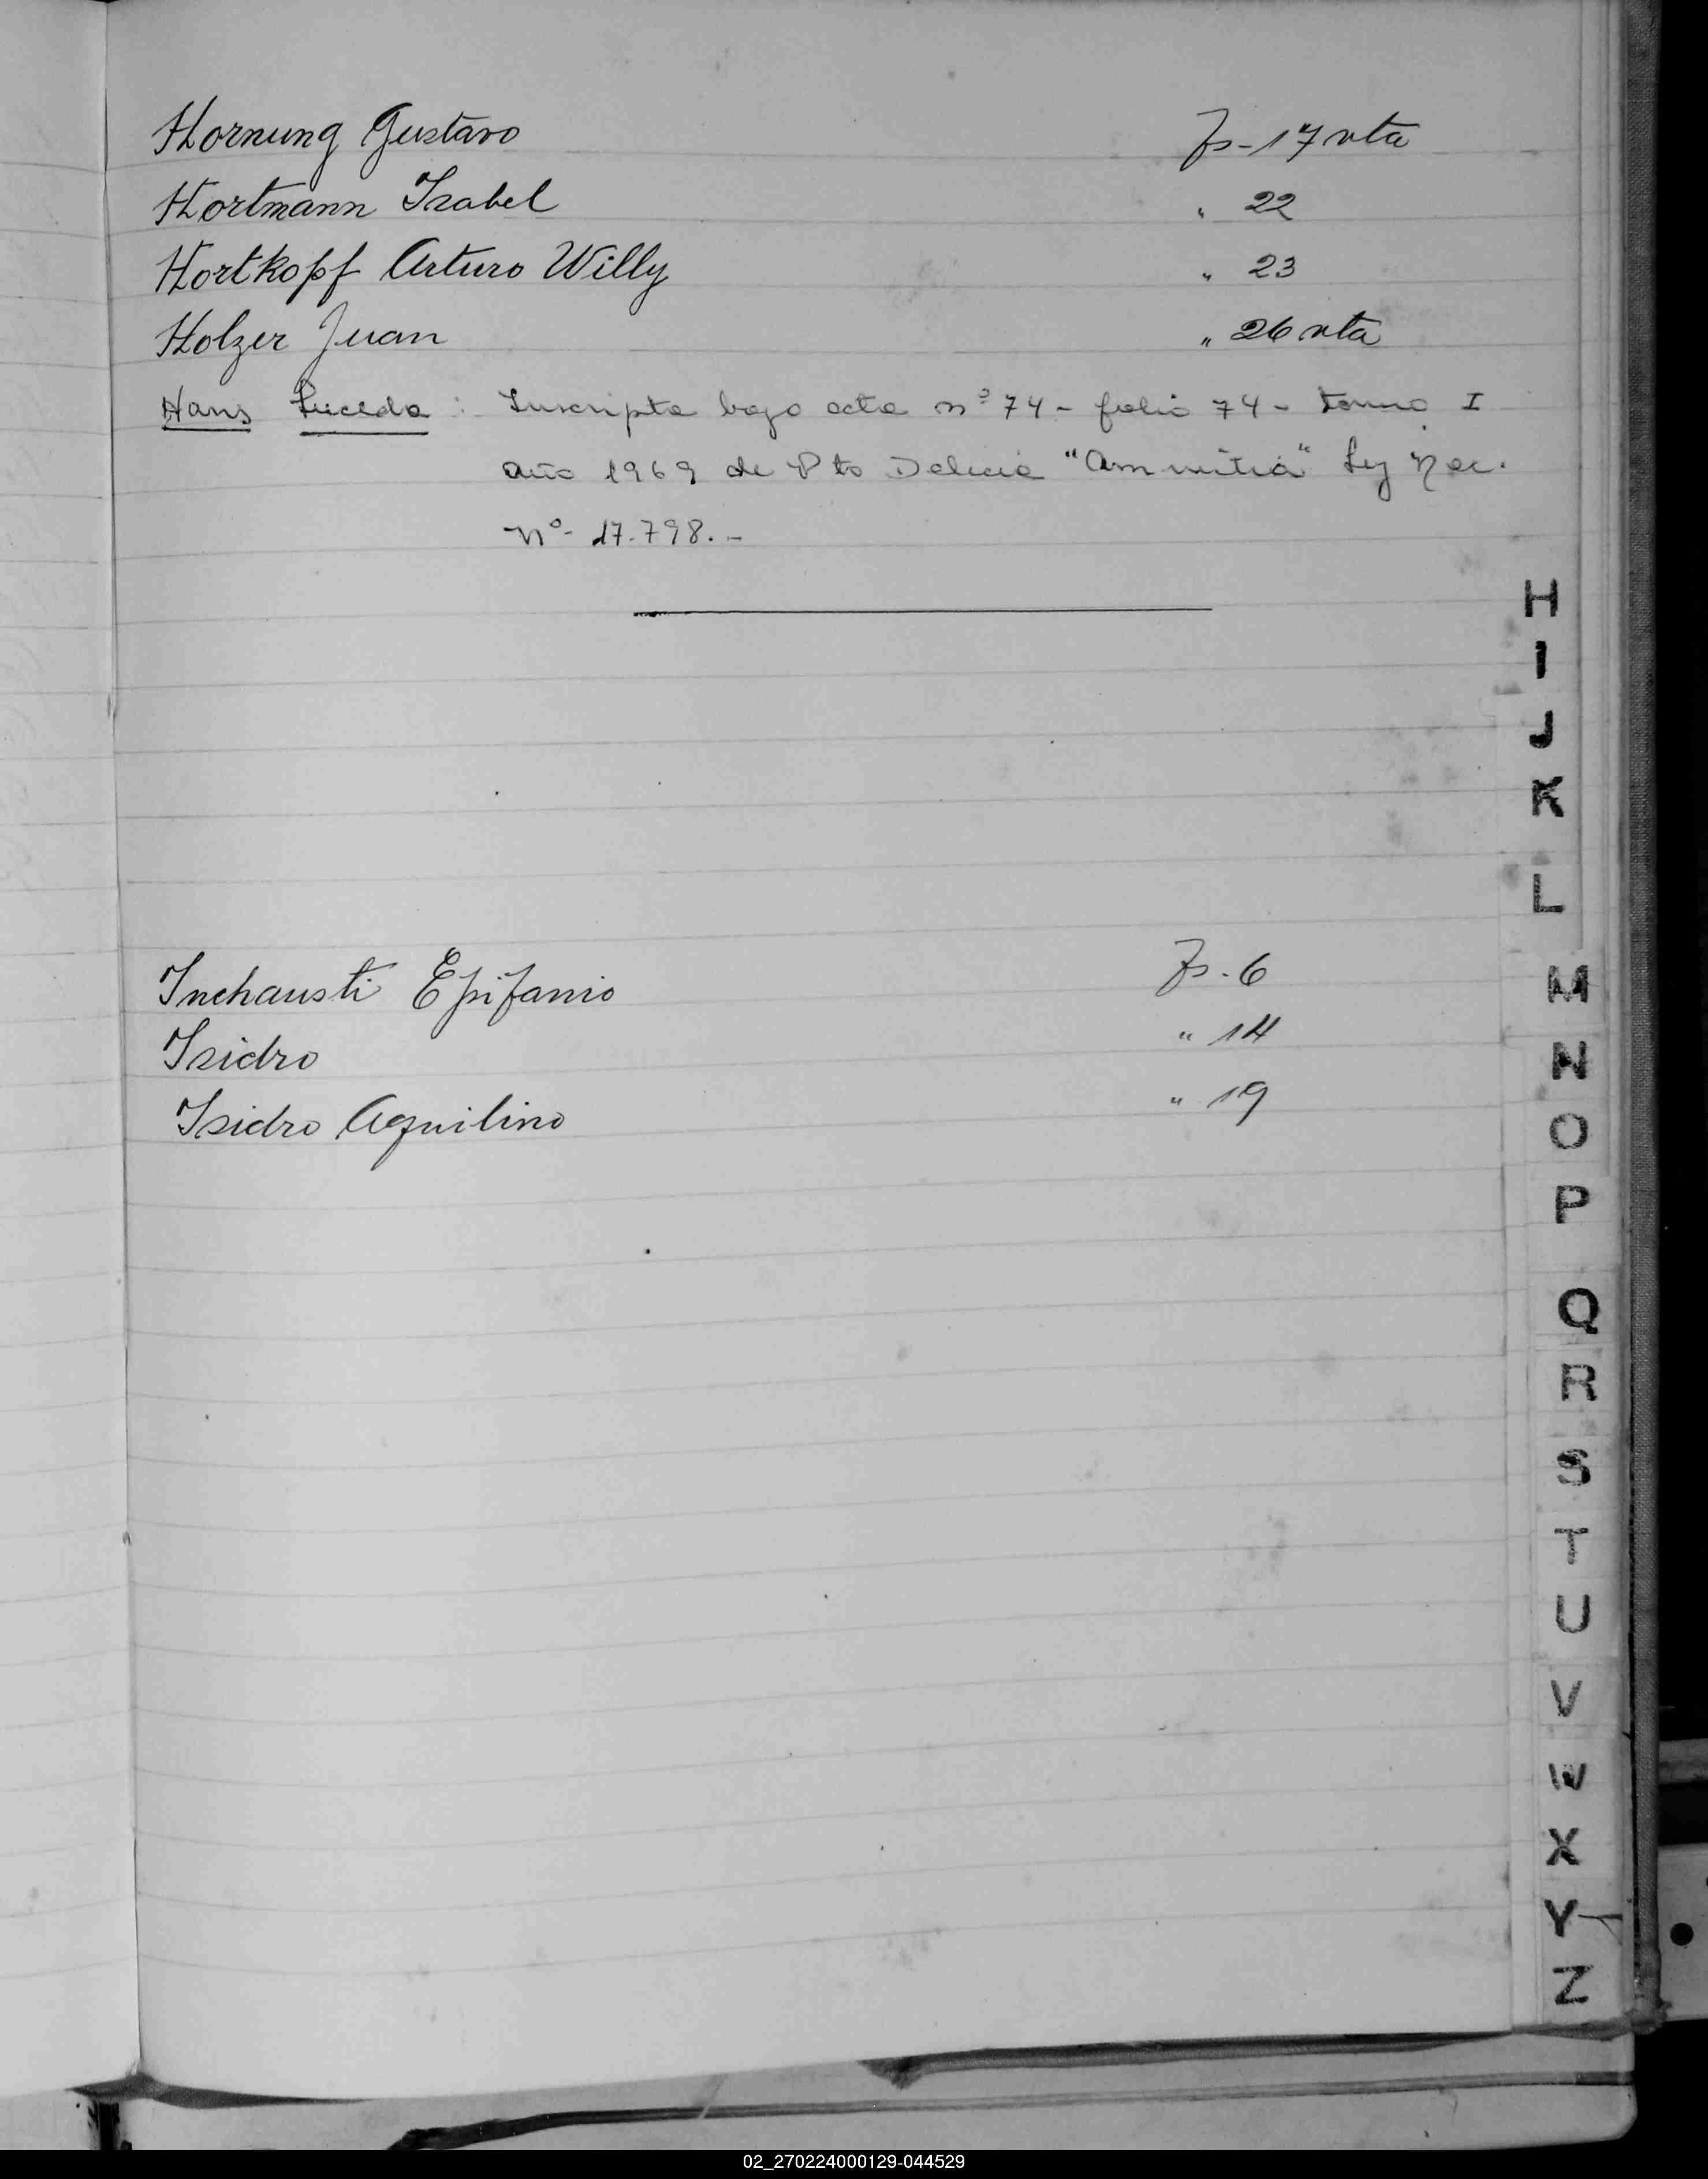 Hornung Gustavo Fs-17 vta
Hortmann Isabel " 22
Hortkopf Arturo Willy " 23
Holzer Juan " 26 vta
Hans Luceda : Inscripta bajo acta nº 74 - folio 74 - tomo I
año 1969 de Pto Delicia "Amnistia" Ley Nac.
Nº- 17.798.-
Inchausti Epifanio Fs-6
Isidro " 14
Isidro Aquilino " 19
H
I
J
K
L
M
N
O
P
Q
R
S
T
U
V
W
X
Y
Z
02_270224000129-044529